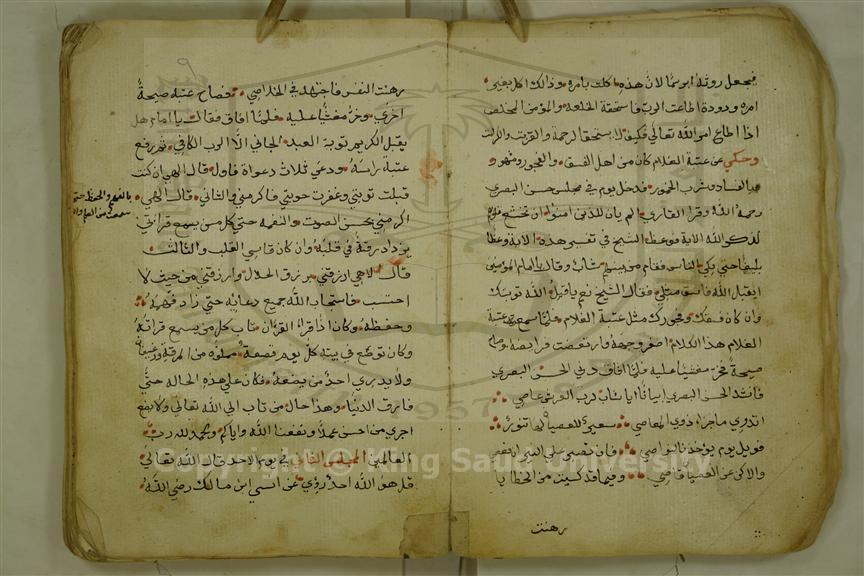 فجعل روثه ابوسمًا لان هذه اكلت بامره وذالك اكل بغير
امره ودودة اطاعت الرب فاستحقة الخلعه والمؤمن المخلص
اذا اطاع امر الله تعالي فكيف لا يستحق الرحمة والقربة والزلفة
وحكي عن عتبة الغلام كان من اهل الفسق والفجور ومشهور
بالفساد وشرب الخمور فدخل يوم في مجلس حسن البصري
رحمه الله وقرا القاري الم يان للذين امنوا ان تخشع قلوبهم
لذكر الله الاية فوعظ الشيخ في تفسير هذه الاية وعظًا
بليغًا حتي بكي الناس فقام من بينهم شاب وقال يا امام المؤمنين
ايقبل الله فاسق مثلي فقال الشيخ نعم يا قيل الله توبتك
وان كان فسقك وفجورك مثل عتبة الغلام فلما سمع عتبة
الغلام هذا الكلام اصفر وجهه وارتعصت فرايضه وصاح
صيحةً فخر مغشيًا عليه فلما افاق دني الحسن البصري
فانشد الحسن البصري ابياتًا ايا شاب لرب العرش عاصي
اتدري ما جزاء ذوي المعاصي سعيرًا للعصاة لها تنورٌ
فويل يوم يؤخذ بالنواصي فان تصبر علي النيران فاعصي
والا كن عن العصيان قاصي وفيما قد كسبت من الخطايا
رهنت
رهنت النفس فاجتهد في الخلاصي فصاح عتبة صيحةً
اخري وخر مغشيًا عليه فلما افاق فقالت يا امام هل
يقبل الكريم توبة العبد الجاني الا الرب الكافي ثم رفع
عتبة راسه ودعي ثلاث دعواة فاول قال الهي ان كنت
قبلت توبتي وغفرت حوبتي فاكرمني والثاني قال الهي
اكرمني بحسن الصوت والنغمه حتي كل من يسمع قرائتي
يزداد رقةً في قلبه وان كان قاسي القلب والثالث
قال الاهي ارزقني برزق الحلال وارزقني من حيث لا
احتسب فاستجاب الله جميع دعائه حتي زاد فهمه
وحفظه وكان اذا قراء القران تاب كل من يسمع قراته
وكان توضع في بيته كل يوم قصعة مملوة من المرقة ورغيفان
ولا يدري احد من يضعه فكان علي هذه الحاله حتي
فارق الدنيا وهذا حال من تاب الي الله تعالي ولا يضع
اجري من احسن عملا ونفعنا الله واياكم والحمد لله رب
العالمين المجلس الثاني في يوم الاحد قال الله تعالي
قل هو الله احد روي عن انس ابن مالك رضي الله
بالفهم والحفظ حتي
Copyright © King Saud University
1957